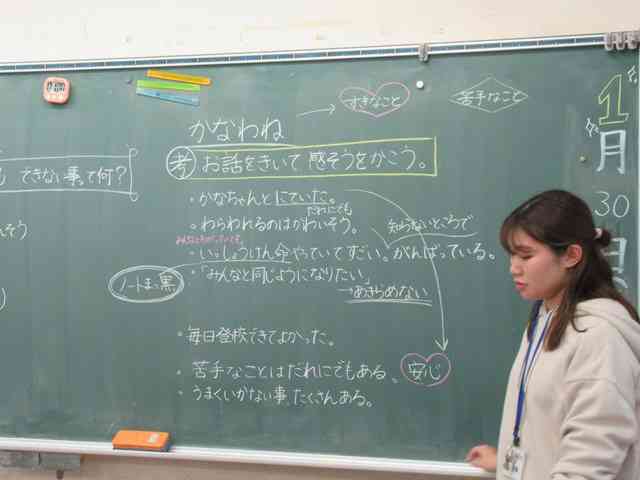 できない事って何?
かなわね
→ すきなこと
苦手なこと
1
月
30
日
考 お話をきいて 感そうをかこう。
・かなちゃんとにていた。
だれにでも
・わらわれるのはかわいそう。
知らないところで
・いっしょうけん命やっていてすごい。がんばっている。
・「みんなと同じようになりたい」
→あきらめない
ノートまっ黒
・毎日登校できてよかった。
・苦手なことはだれにでもある、安心
・うまくいかない事、たくさんある。